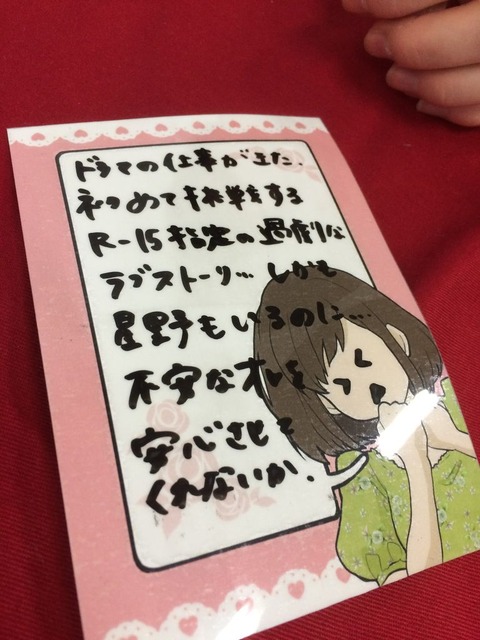 ドラマの仕事がきた.
初めて挑戦する
R-15指定の過劇な
ラブストーリー… しかも
星野もいるのに…
不安なオレを
安心させて
くれないか.